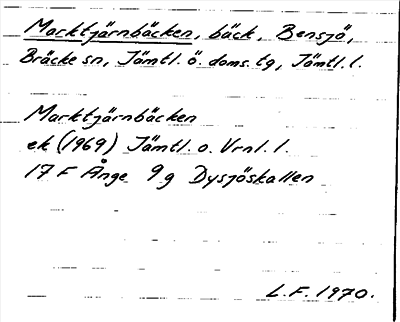 Marktjärnbäcken, bäck, Bensjö,
Bräcke sn, Jämtl. ö. doms. tg, Jämtl. l.
Marktjärnbäcken
ek (1969) Jämtl. o. Vrnl. l.
17 F Ånge 9g Dysjöskallen
L.F. 1970.